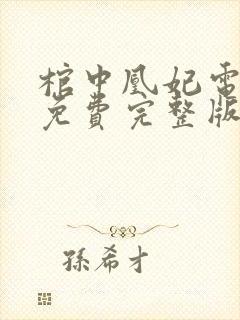 棺中凰妃電
免費完整版
孫希才